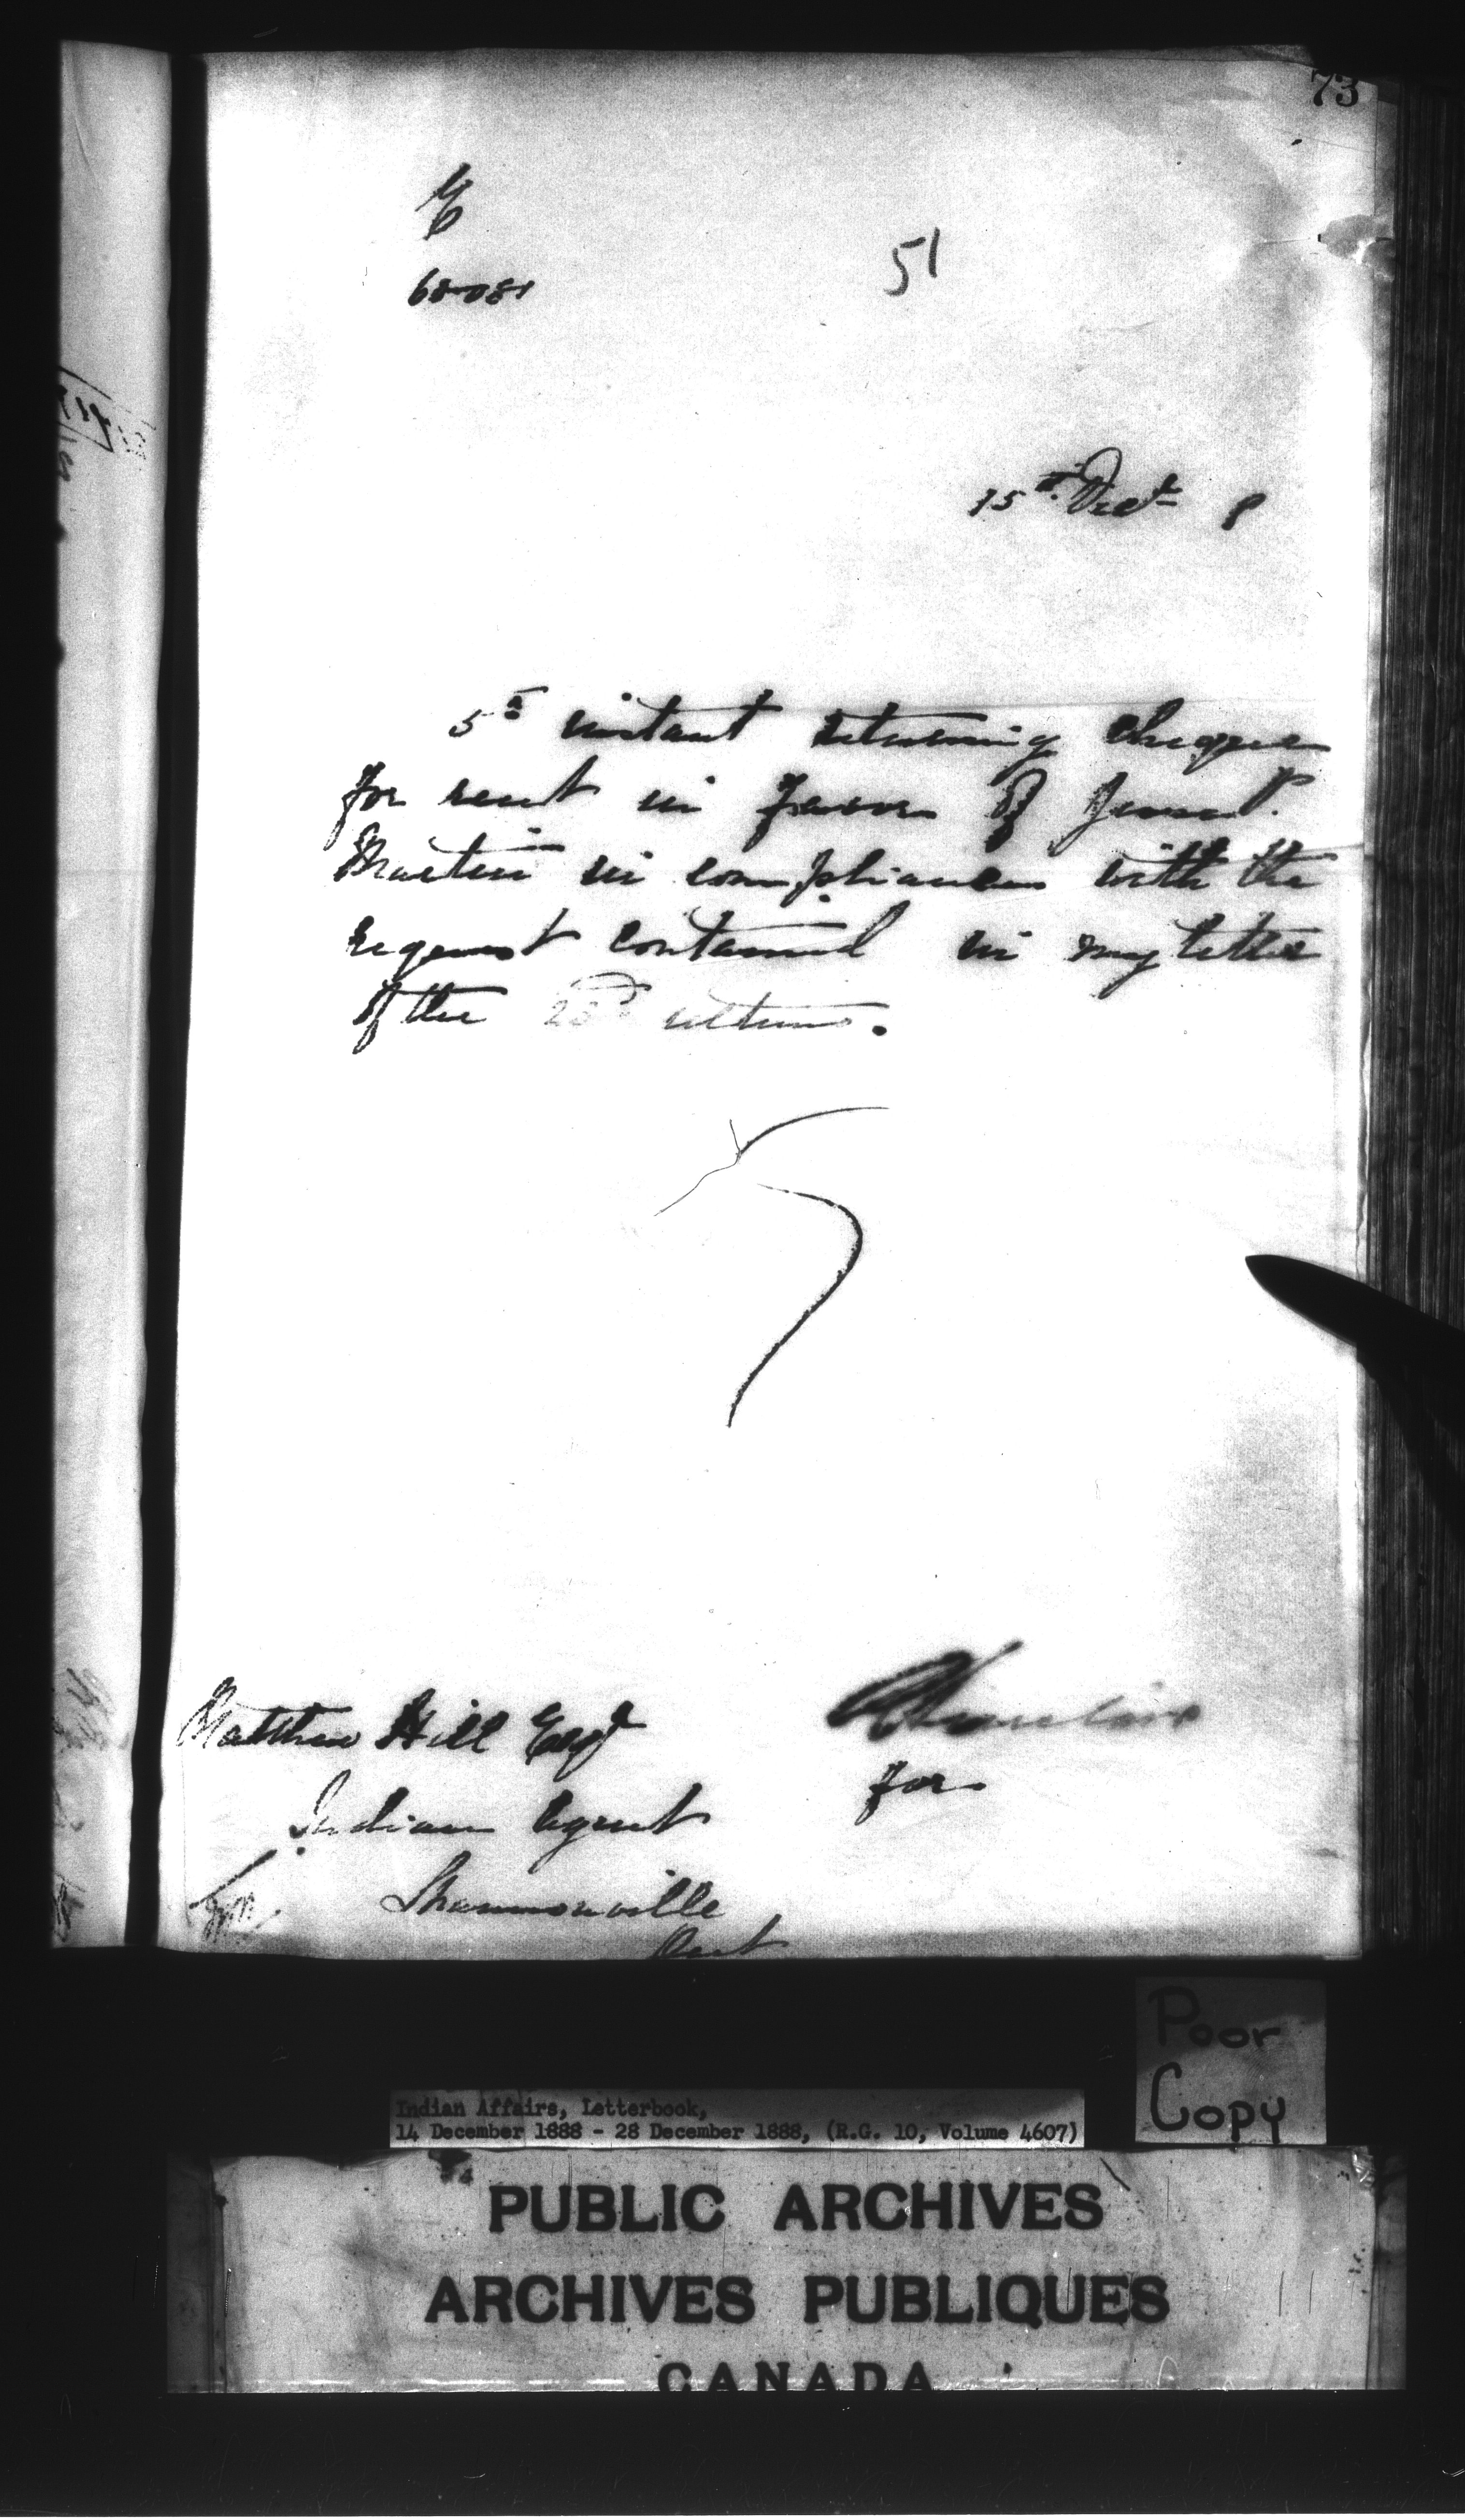 73
51
15th Decr 8
5th instant returning cheque
for rent in favor of
Martin in compliance with the
request contained in my letter
of the 23rd ultimo.
Matthew Hill Esqr
for
Indian Agent
Shannonville
Ont
Poor
Copy
Indian Affairs, Letterbook,
14 December 1888 - 28 December 1888, (R.G. 10, Volume 4607)
PUBLIC ARCHIVES
ARCHIVES PUBLIQUES
CANADA